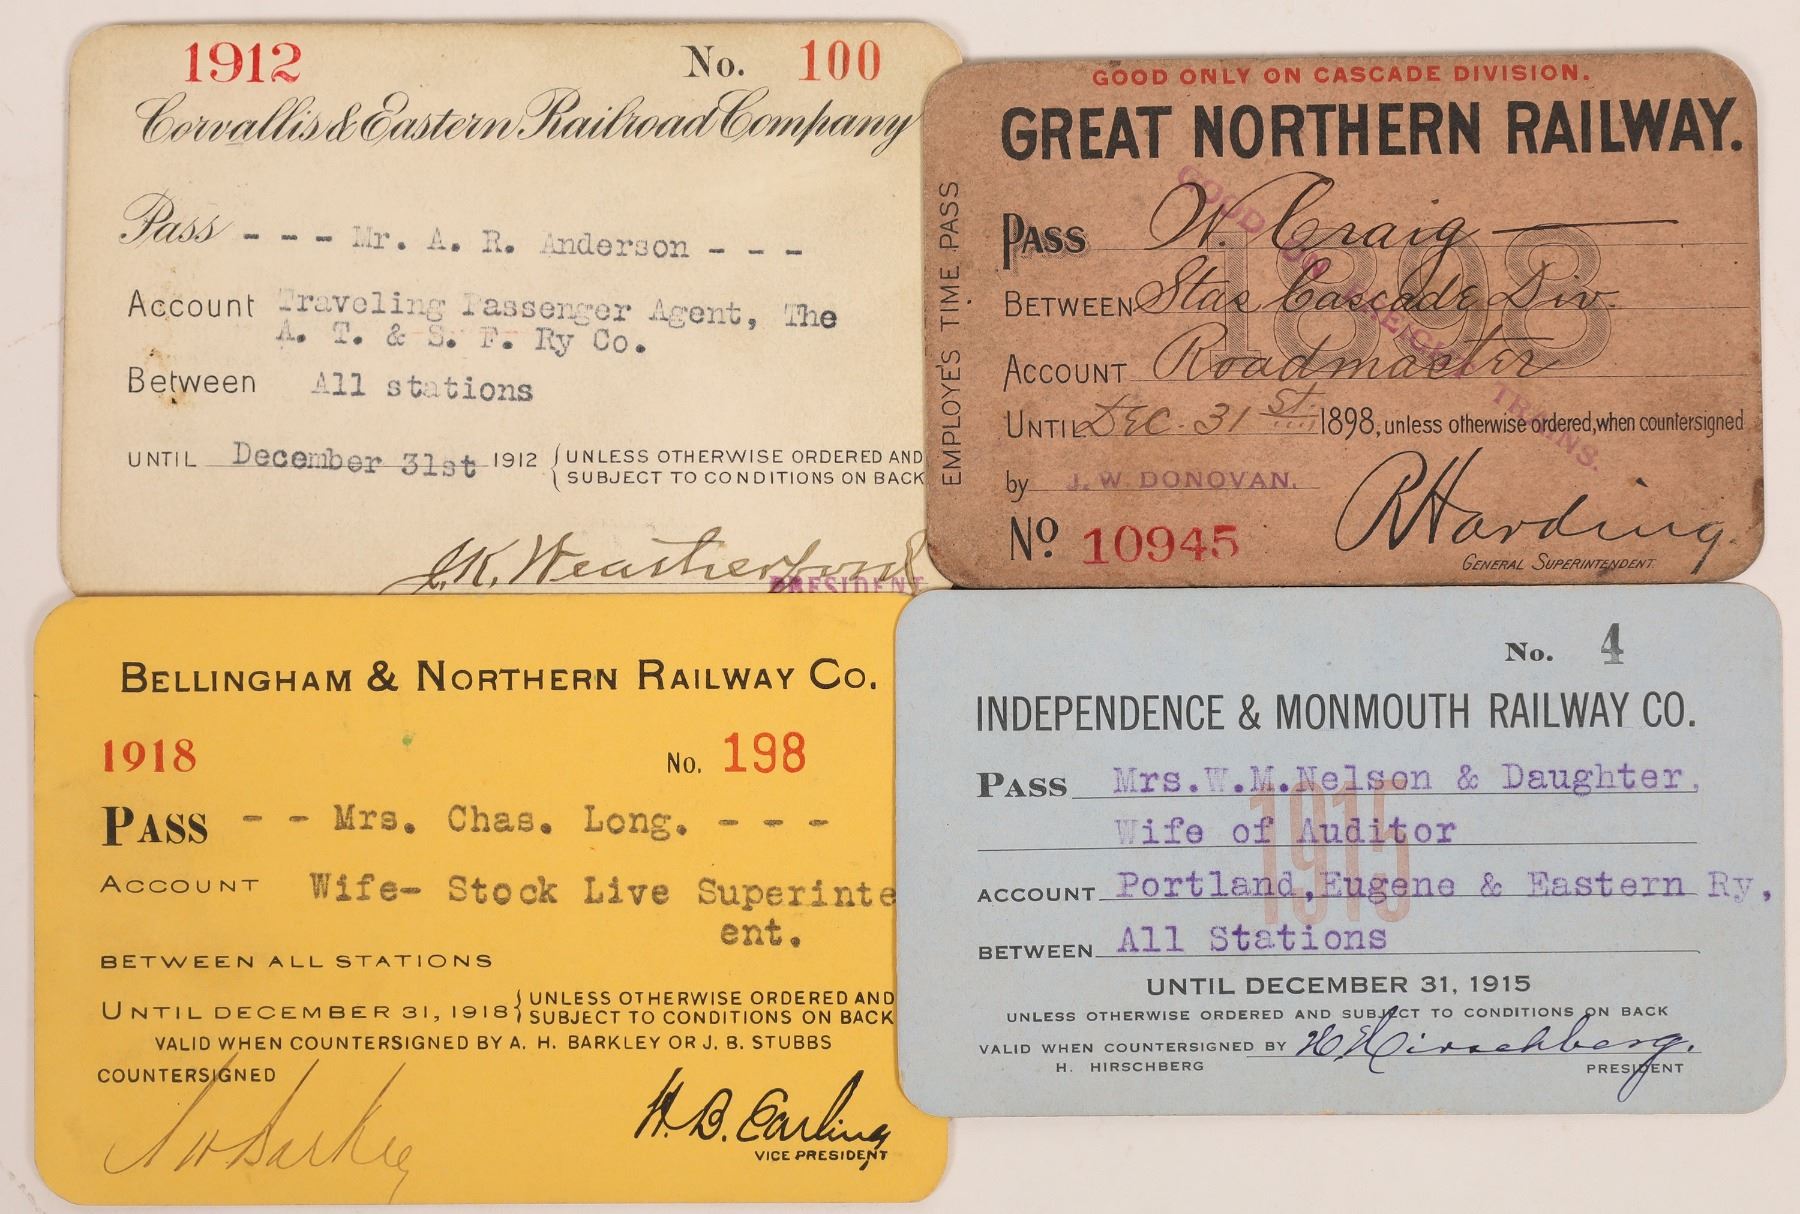 1912 No. 100
Corvallis & Eastern Railroad Company
Pass - - - Mr. A. R. Anderson - - -
Account Traveling Passenger Agent, The
A. T. & S. F. Ry Co.
Between All stations
UNTIL December 31st 1912 { UNLESS OTHERWISE ORDERED AND
SUBJECT TO CONDITIONS ON BACK
J.K. Weatherford
PRESIDENT
GOOD ONLY ON CASCADE DIVISION.
GREAT NORTHERN RAILWAY.
EMPLOYE'S TIME PASS
PASS W. Craig
BETWEEN Stas Cascade Div.
1898
ACCOUNT Roadmaster
UNTIL DEC. 31st 1898, unless otherwise ordered, when countersigned
by J. W. DONOVAN.
GOOD ON FREIGHT TRAINS.
No 10945
R Harding
GENERAL SUPERINTENDENT.
BELLINGHAM & NORTHERN RAILWAY CO.
1918 No. 198
PASS - - Mrs. Chas. Long. - - -
ACCOUNT Wife- Stock Live Superinte
ent.
BETWEEN ALL STATIONS
UNTIL DECEMBER 31, 1918 { UNLESS OTHERWISE ORDERED AND
SUBJECT TO CONDITIONS ON BACK
VALID WHEN COUNTERSIGNED BY A. H. BARKLEY OR J. B. STUBBS
COUNTERSIGNED
A H Barkley
H. B. Earling
VICE PRESIDENT
No. 4
INDEPENDENCE & MONMOUTH RAILWAY CO.
PASS Mrs.W.M.Nelson & Daughter,
Wife of Auditor
1915
ACCOUNT Portland,Eugene & Eastern Ry,
BETWEEN All Stations
UNTIL DECEMBER 31, 1915
UNLESS OTHERWISE ORDERED AND SUBJECT TO CONDITIONS ON BACK
VALID WHEN COUNTERSIGNED BY H Hirschberg.
H. HIRSCHBERG PRESIDENT